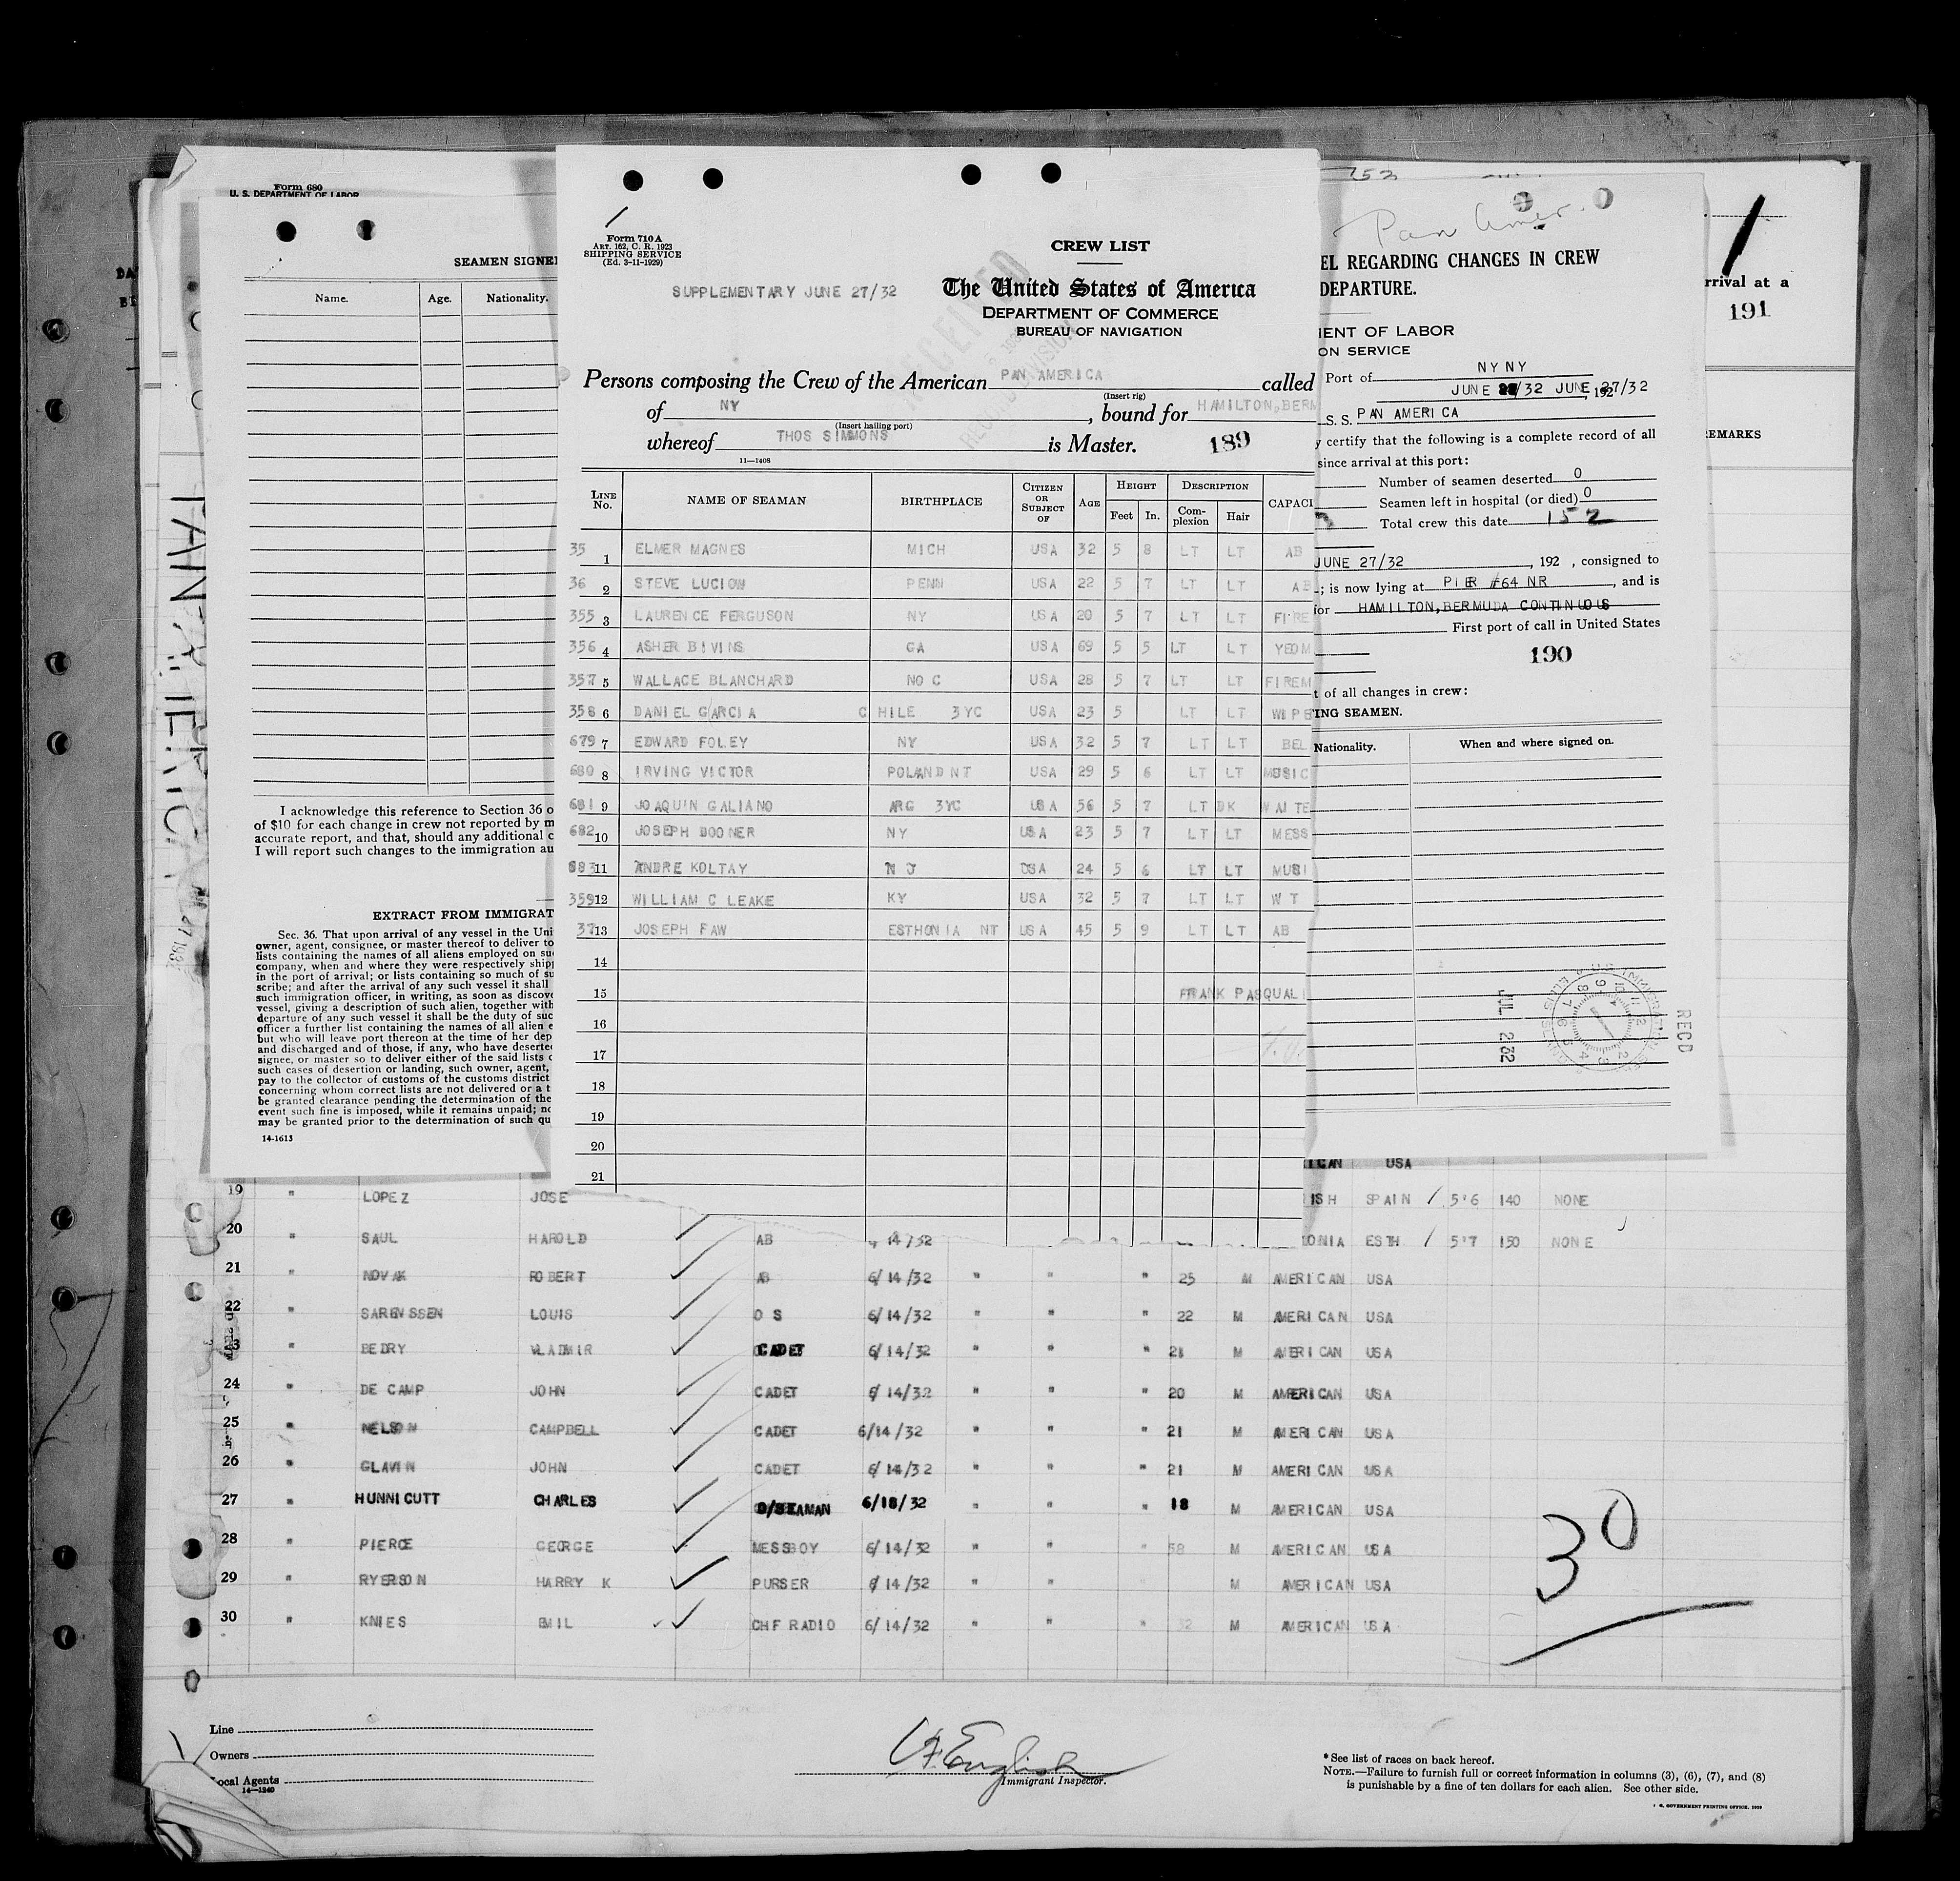 Form 680
U. S. DEPARTMENT OF LABOR
SEAMEN SIGNE
Name. Age. Nationality.
I acknowledge this reference to Section 36 o
of $10 for each change in crew not reported by m
accurate report, and that, should any additional c
I will report such changes to the immigration au
EXTRACT FROM IMMIGRAT
Sec. 36. That upon arrival of any vessel in the Uni
owner, agent, consignee, or master thereof to deliver to
lists containing the names of all aliens employed on su
company, when and where they were respectively ship
in the port of arrival; or lists containing so much of su
scribe; and after the arrival of any such vessel it shall
such immigration officer, in writing, as soon as discove
vessel, giving a description of such alien, together with
departure of any such vessel it shall be the duty of suc
officer a further list containing the names of all alien e
but who will leave port thereon at the time of her dep
and discharged and of those, if any, who have deserted
signee, or master so to deliver either of the said lists o
such cases of desertion or landing, such owner, agent,
pay to the collector of customs of the customs district
concerning whom correct lists are not delivered or a t
be granted clearance pending the determination of the
event such fine is imposed, while it remains unpaid; no
may be granted prior to the determination of such qu
14-1613
Form 710 A
ART. 162, C. R. 1923
SHIPPING SERVICE
(Ed. 3-11-1929)
CREW LIST
SUPPLEMENTARY JUNE 27/32
The United States of America
DEPARTMENT OF COMMERCE
BUREAU OF NAVIGATION
RECEIVED
Persons composing the Crew of the American PAN AMERICA called
(Insert rig)
of NY , bound for HAMILTON,BERM
(Insert hailing port)
whereof THOS SIMMONS is Master. 189
11—1408
LINE No. NAME OF SEAMAN BIRTHPLACE CITIZEN OR SUBJECT OF AGE HEIGHT Feet In. DESCRIPTION Complexion Hair CAPACI
35 1 ELMER MAGNES MICH USA 32 5 8 LT LT AB
36 2 STEVE LUCIOW PENN USA 22 5 7 LT LT AB
355 3 LAURENCE FERGUSON NY USA 20 5 7 LT LT FIRE
356 4 ASHER BIVINS GA USA 69 5 5 LT LT YEOM
357 5 WALLACE BLANCHARD NO C USA 28 5 7 LT LT FIREM
358 6 DANIEL GARCIA CHILE 3YC USA 23 5 LT LT WIPE
679 7 EDWARD FOLEY NY USA 32 5 7 LT LT BEL
680 8 IRVING VICTOR POLAND NT USA 29 5 6 LT LT MUSIC
681 9 JOAQUIN GALIANO ARG 3YC USA 56 5 7 LT DK WAITE
682 10 JOSEPH DOONER NY USA 23 5 7 LT LT MESS
683 11 ANDRE KOLTAY N J USA 24 5 6 LT LT MUSI
359 12 WILLIAM C LEAKE KY USA 32 5 7 LT LT W T
37 13 JOSEPH FAW ESTHONIA NT USA 45 5 9 LT LT AB
14
15 FRANK PASQUALI
16
17
18
19
20
21
152
Pan Amer.
EL REGARDING CHANGES IN CREW
DEPARTURE.
MENT OF LABOR
ON SERVICE
Port of NY NY
JUNE /32 JUNE 27/32 , 192
S. S. PAN AMERICA
y certify that the following is a complete record of all
since arrival at this port:
Number of seamen deserted 0
Seamen left in hospital (or died) 0
Total crew this date 152
JUNE 27/32 , 192 , consigned to
; is now lying at PIER #64 NR , and is
for HAMILTON,BERMUDA CONTINUOUS
First port of call in United States
190
t of all changes in crew:
ING SEAMEN.
Nationality. When and where signed on.
JUL 2 32
RECD
1
rrival at a
191
REMARKS
ICAN USA
19 " LOPEZ JOSE ISH SPAIN / 5'6 140 NONE
20 " SAUL HAROLD AB 14/32 ONIA ESTH / 5'7 150 NONE
21 " NOVAK ROBERT AB 6/14/32 " " " 25 M AMERICAN USA
22 " SARENSSEN LOUIS O S 6/14/32 " " " 22 M AMERICAN USA
3 " BEDRY VLADMIR CADET 6/14/32 " " " 21 M AMERICAN USA
24 " DE CAMP JOHN CADET 6/14/32 " " " 20 M AMERICAN USA
25 " NELSON CAMPBELL CADET 6/14/32 " " " 21 M AMERICAN USA
26 " GLAVIN JOHN CADET 6/14/32 " " " 21 M AMERICAN USA
27 " HUNNICUTT CHARLES O/SEAMAN 6/18/32 " " " 18 M AMERICAN USA
28 " PIERCE GEORGE MESSBOY 6/14/32 " " " 58 M AMERICAN USA
29 " RYERSON HARRY K PURSER 6/14/32 " " M AMERICAN USA
30 " KNIES EMIL CHF RADIO 6/14/32 " " " 32 M AMERICAN USA
30
Line
Owners
Local Agents
14—1240
English
Immigrant Inspector.
* See list of races on back hereof.
NOTE.—Failure to furnish full or correct information in columns (3), (6), (7), and (8)
is punishable by a fine of ten dollars for each alien. See other side.